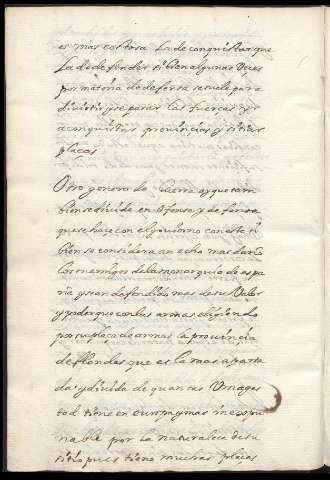 es mas costosa la de conquistar que
la de defender si bien algunas veces
por materia de defensa se suele para
divertir y separar las fuerças yr
a conquistar provincias y sitiar
plaças
Otro genero de guerra ay que tam
bien se divide en ofensa y defensa
que se haçe con el govierno con este ti
bien se considera an echo mas daño
los enemigos de la monarquia de espa
ña y se an defendido mas de su valor
y poder que con las armas eligiendo
por su plaça de armas la provincia
de flandes que es la mas aparta
da y divida de quantas Vmages
tad tiene en europa y mas inespu
nable por la naturaleza de su
sitio pues tiene muchas plaças